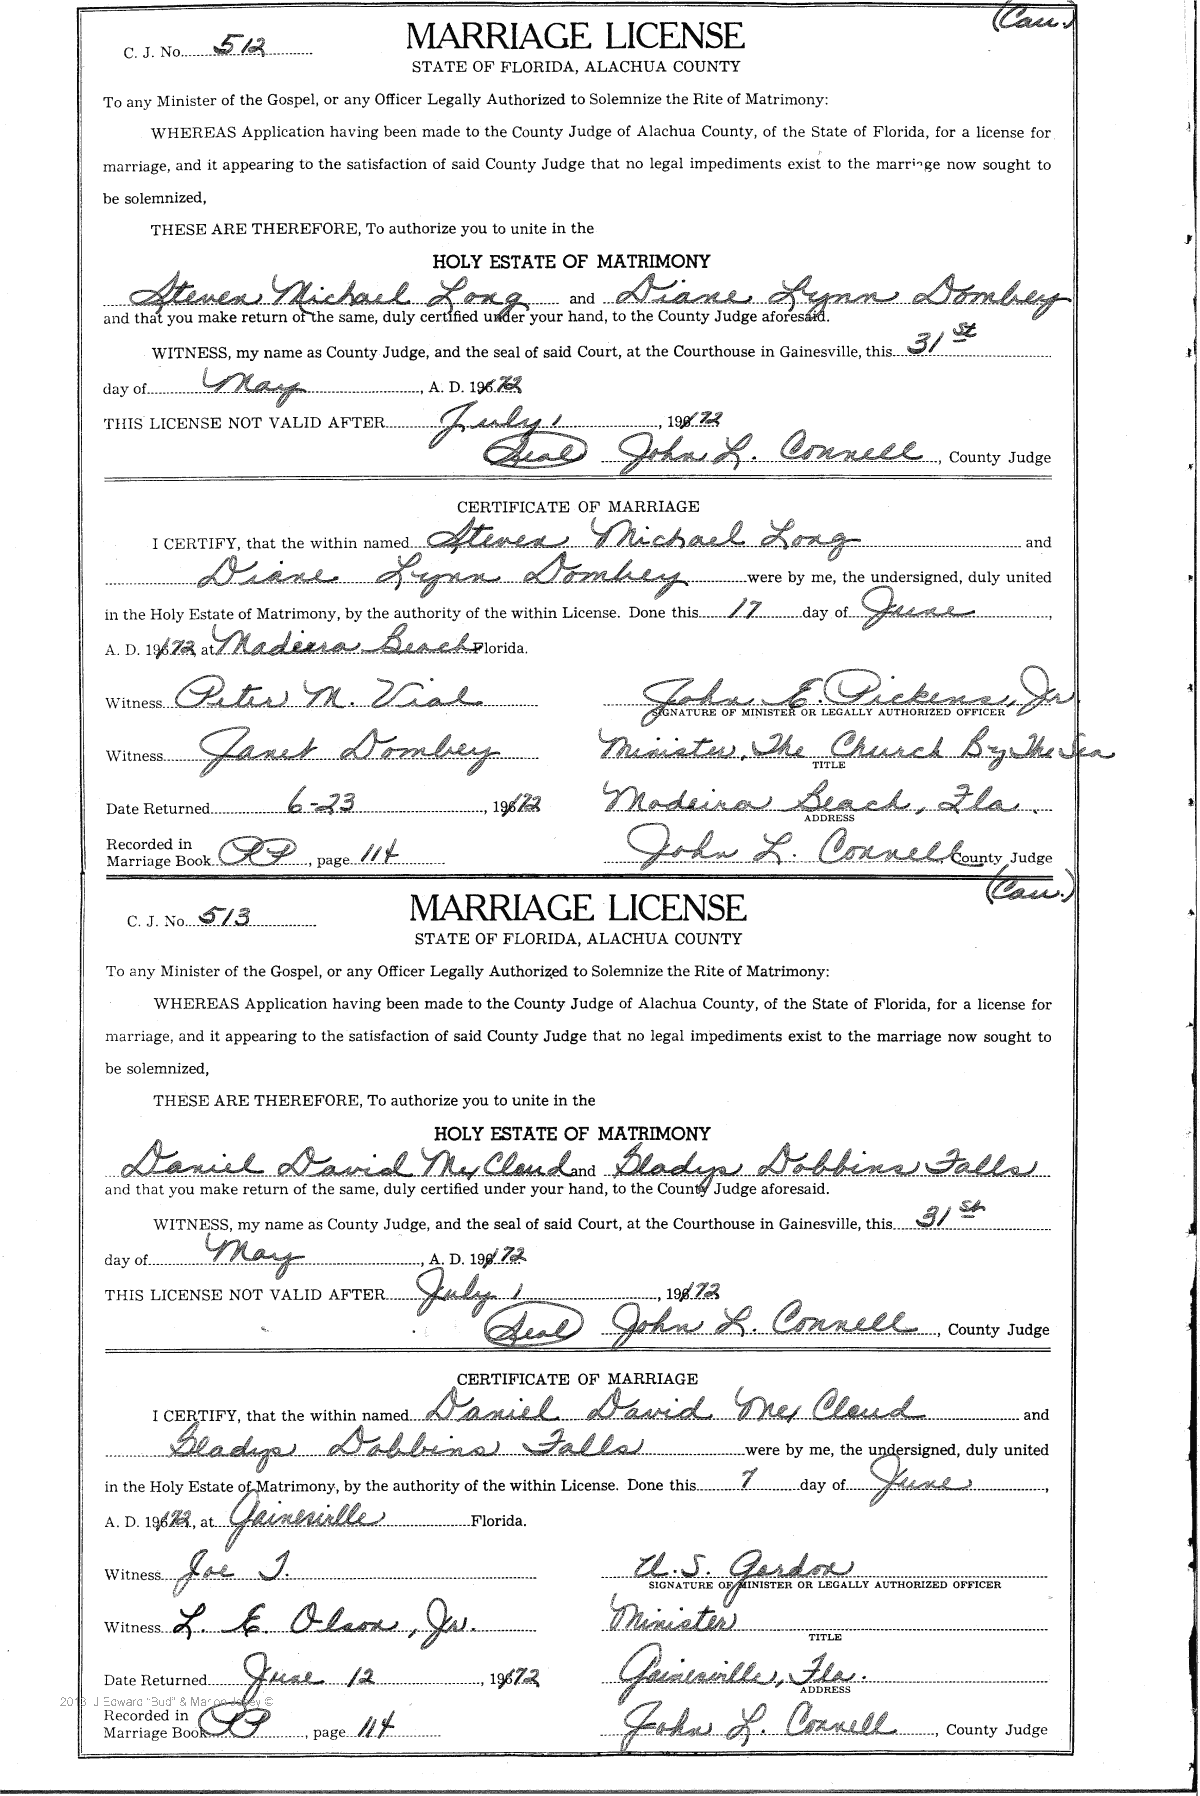 (Cau.)
C. J. No. 512
MARRIAGE LICENSE
STATE OF FLORIDA, ALACHUA COUNTY
To any Minister of the Gospel, or any Officer Legally Authorized to Solemnize the Rite of Matrimony:
WHEREAS Application having been made to the County Judge of Alachua County, of the State of Florida, for a license for
marriage, and it appearing to the satisfaction of said County Judge that no legal impediments exist to the marriage now sought to
be solemnized,
THESE ARE THEREFORE, To authorize you to unite in the
HOLY ESTATE OF MATRIMONY
Steven Michael Long and Diane Lynn Dombey
and that you make return of the same, duly certified under your hand, to the County Judge aforesaid.
WITNESS, my name as County Judge, and the seal of said Court, at the Courthouse in Gainesville, this 31st
day of May, A. D. 1972
THIS LICENSE NOT VALID AFTER July 1, 1972
Seal John L. Connell, County Judge
CERTIFICATE OF MARRIAGE
I CERTIFY, that the within named Steven Michael Long and
Diane Lynn Dombey were by me, the undersigned, duly united
in the Holy Estate of Matrimony, by the authority of the within License. Done this 17 day of June,
A. D. 1972, at Madeira Beach Florida.
Witness Peter M. Vial John E. Pickens, Jr
SIGNATURE OF MINISTER OR LEGALLY AUTHORIZED OFFICER
Witness Janet Dombey Minister, The Church By The Sea
TITLE
Date Returned 6-23, 1972 Madeira Beach, Fla.
ADDRESS
Recorded in
Marriage Book PP, page 114 John L. Connell County Judge
(Cau.)
C. J. No. 513
MARRIAGE LICENSE
STATE OF FLORIDA, ALACHUA COUNTY
To any Minister of the Gospel, or any Officer Legally Authorized to Solemnize the Rite of Matrimony:
WHEREAS Application having been made to the County Judge of Alachua County, of the State of Florida, for a license for
marriage, and it appearing to the satisfaction of said County Judge that no legal impediments exist to the marriage now sought to
be solemnized,
THESE ARE THEREFORE, To authorize you to unite in the
HOLY ESTATE OF MATRIMONY
Daniel David McCloud and Gladys Dobbins Falls
and that you make return of the same, duly certified under your hand, to the County Judge aforesaid.
WITNESS, my name as County Judge, and the seal of said Court, at the Courthouse in Gainesville, this 31st
day of May, A. D. 1972
THIS LICENSE NOT VALID AFTER July 1, 1972
Seal John L. Connell, County Judge
CERTIFICATE OF MARRIAGE
I CERTIFY, that the within named Daniel David McCloud and
Gladys Dobbins Falls were by me, the undersigned, duly united
in the Holy Estate of Matrimony, by the authority of the within License. Done this 7 day of June,
A. D. 1972, at Gainesville Florida.
Witness Joe T. U. S. Gordon
SIGNATURE OF MINISTER OR LEGALLY AUTHORIZED OFFICER
Witness L. E. Olson, Jr. Minister
TITLE
Date Returned June 12, 1972 Gainesville, Fla.
ADDRESS
J Edward "Bud" & ©
Recorded in
Marriage Book PP, page 114 John L. Connell, County Judge